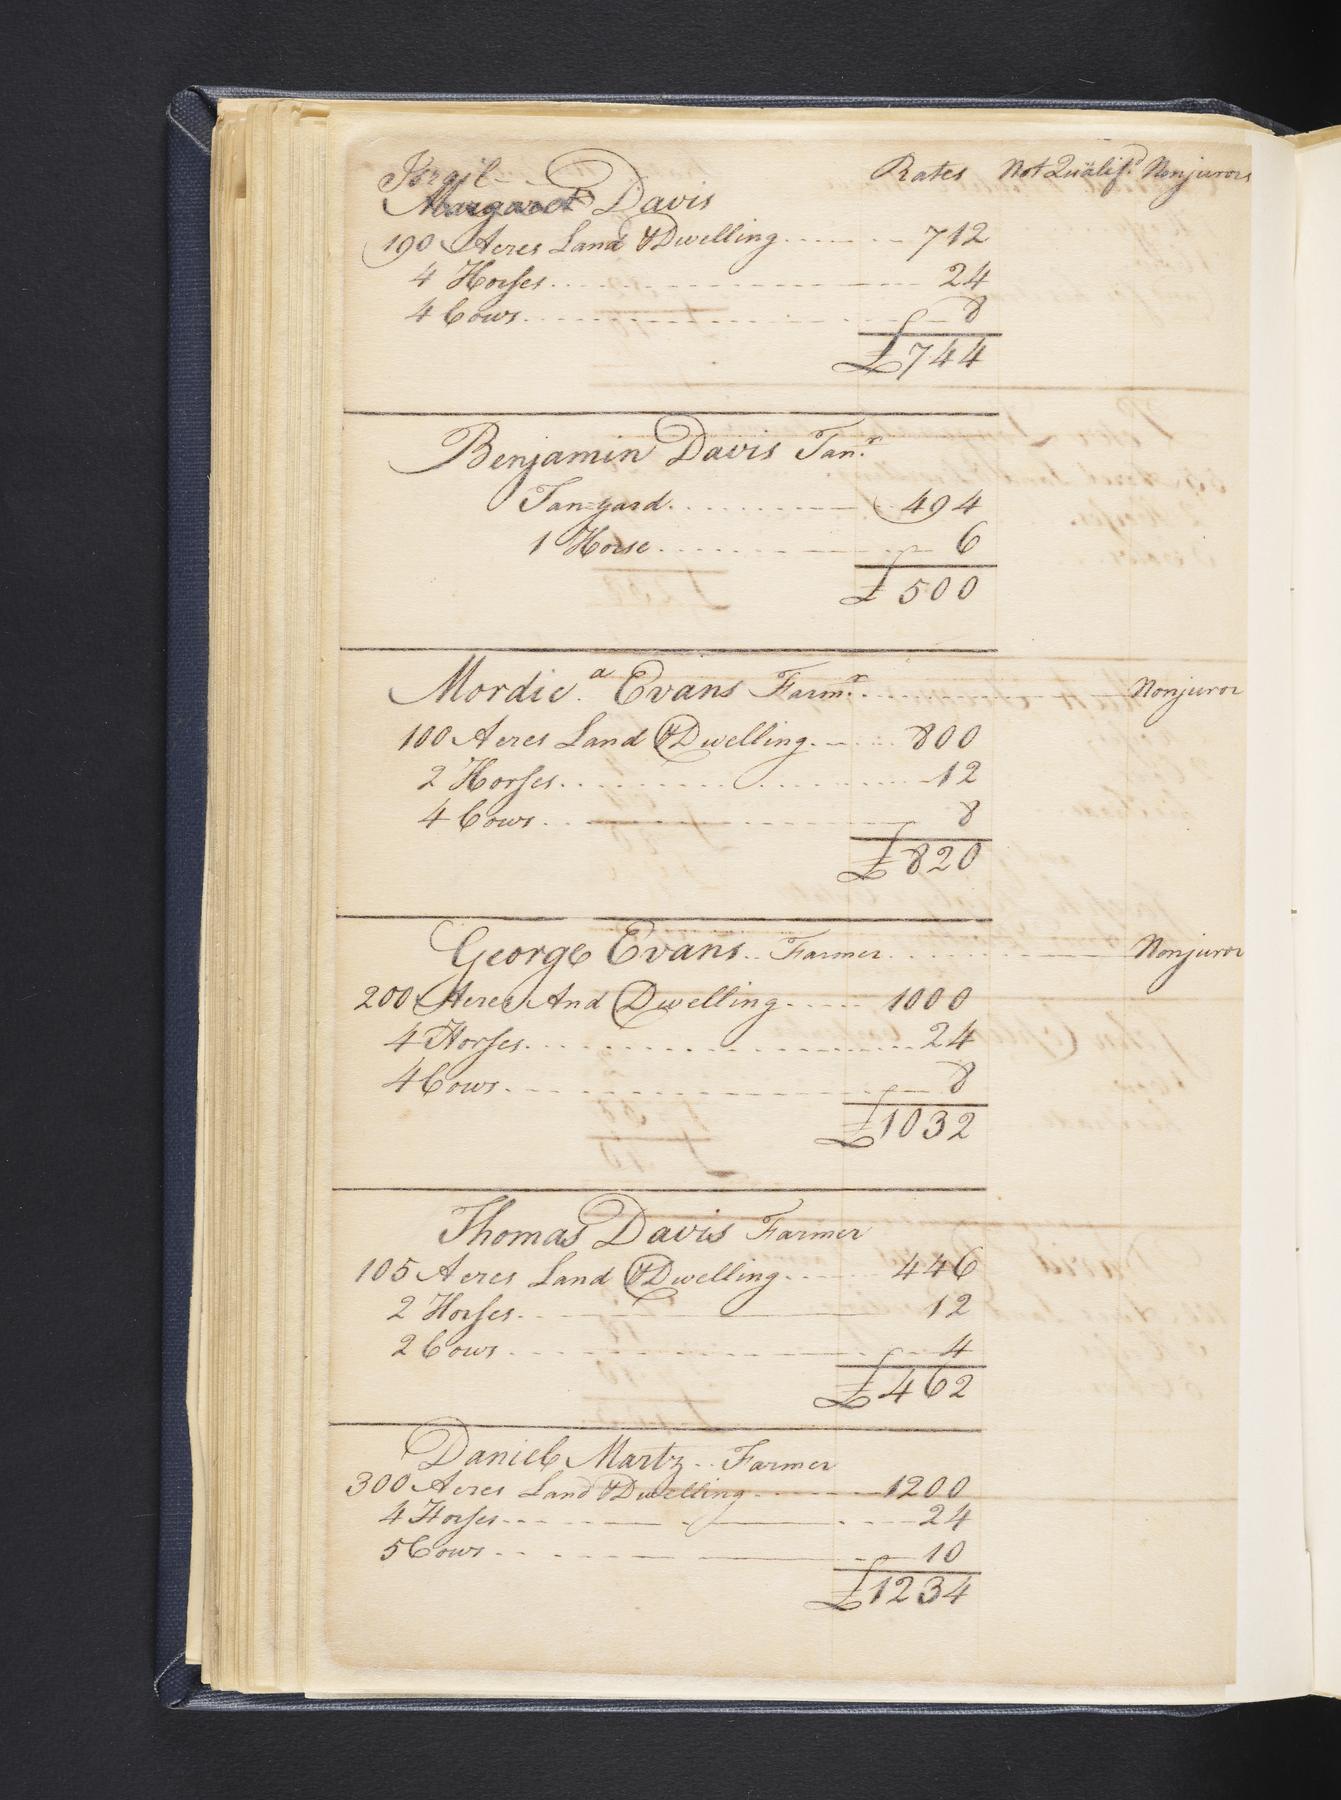 Israil Rates Not Qualif.d Nonjurors
Margaret Davis
190 Acres Land & Dwelling 712
4 Horses 24
4 Cows 8
£744
Benjamin Davis Tan.r
Tan-yard 494
1 Horse 6
£500
Mordic.a Evans Farm.r Nonjuror
100 Acres Land & Dwelling 800
2 Horses 12
4 Cows 8
£820
George Evans Farmer Nonjuror
200 Acres And Dwelling 1000
4 Horses 24
4 Cows 8
£1032
Thomas Davis Farmer
105 Acres Land & Dwelling 446
2 Horses 12
2 Cows 4
£462
Daniel Martz Farmer
300 Acres Land & Dwelling 1200
4 Horses 24
5 Cows 10
£1234